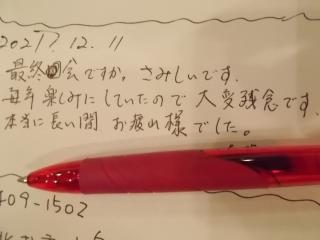 2021.12.11
最終回会ですか。さみしいです。
毎年楽しみにしていたので大変残念です。
本当に長い間 お疲れ様でした。
409-1502